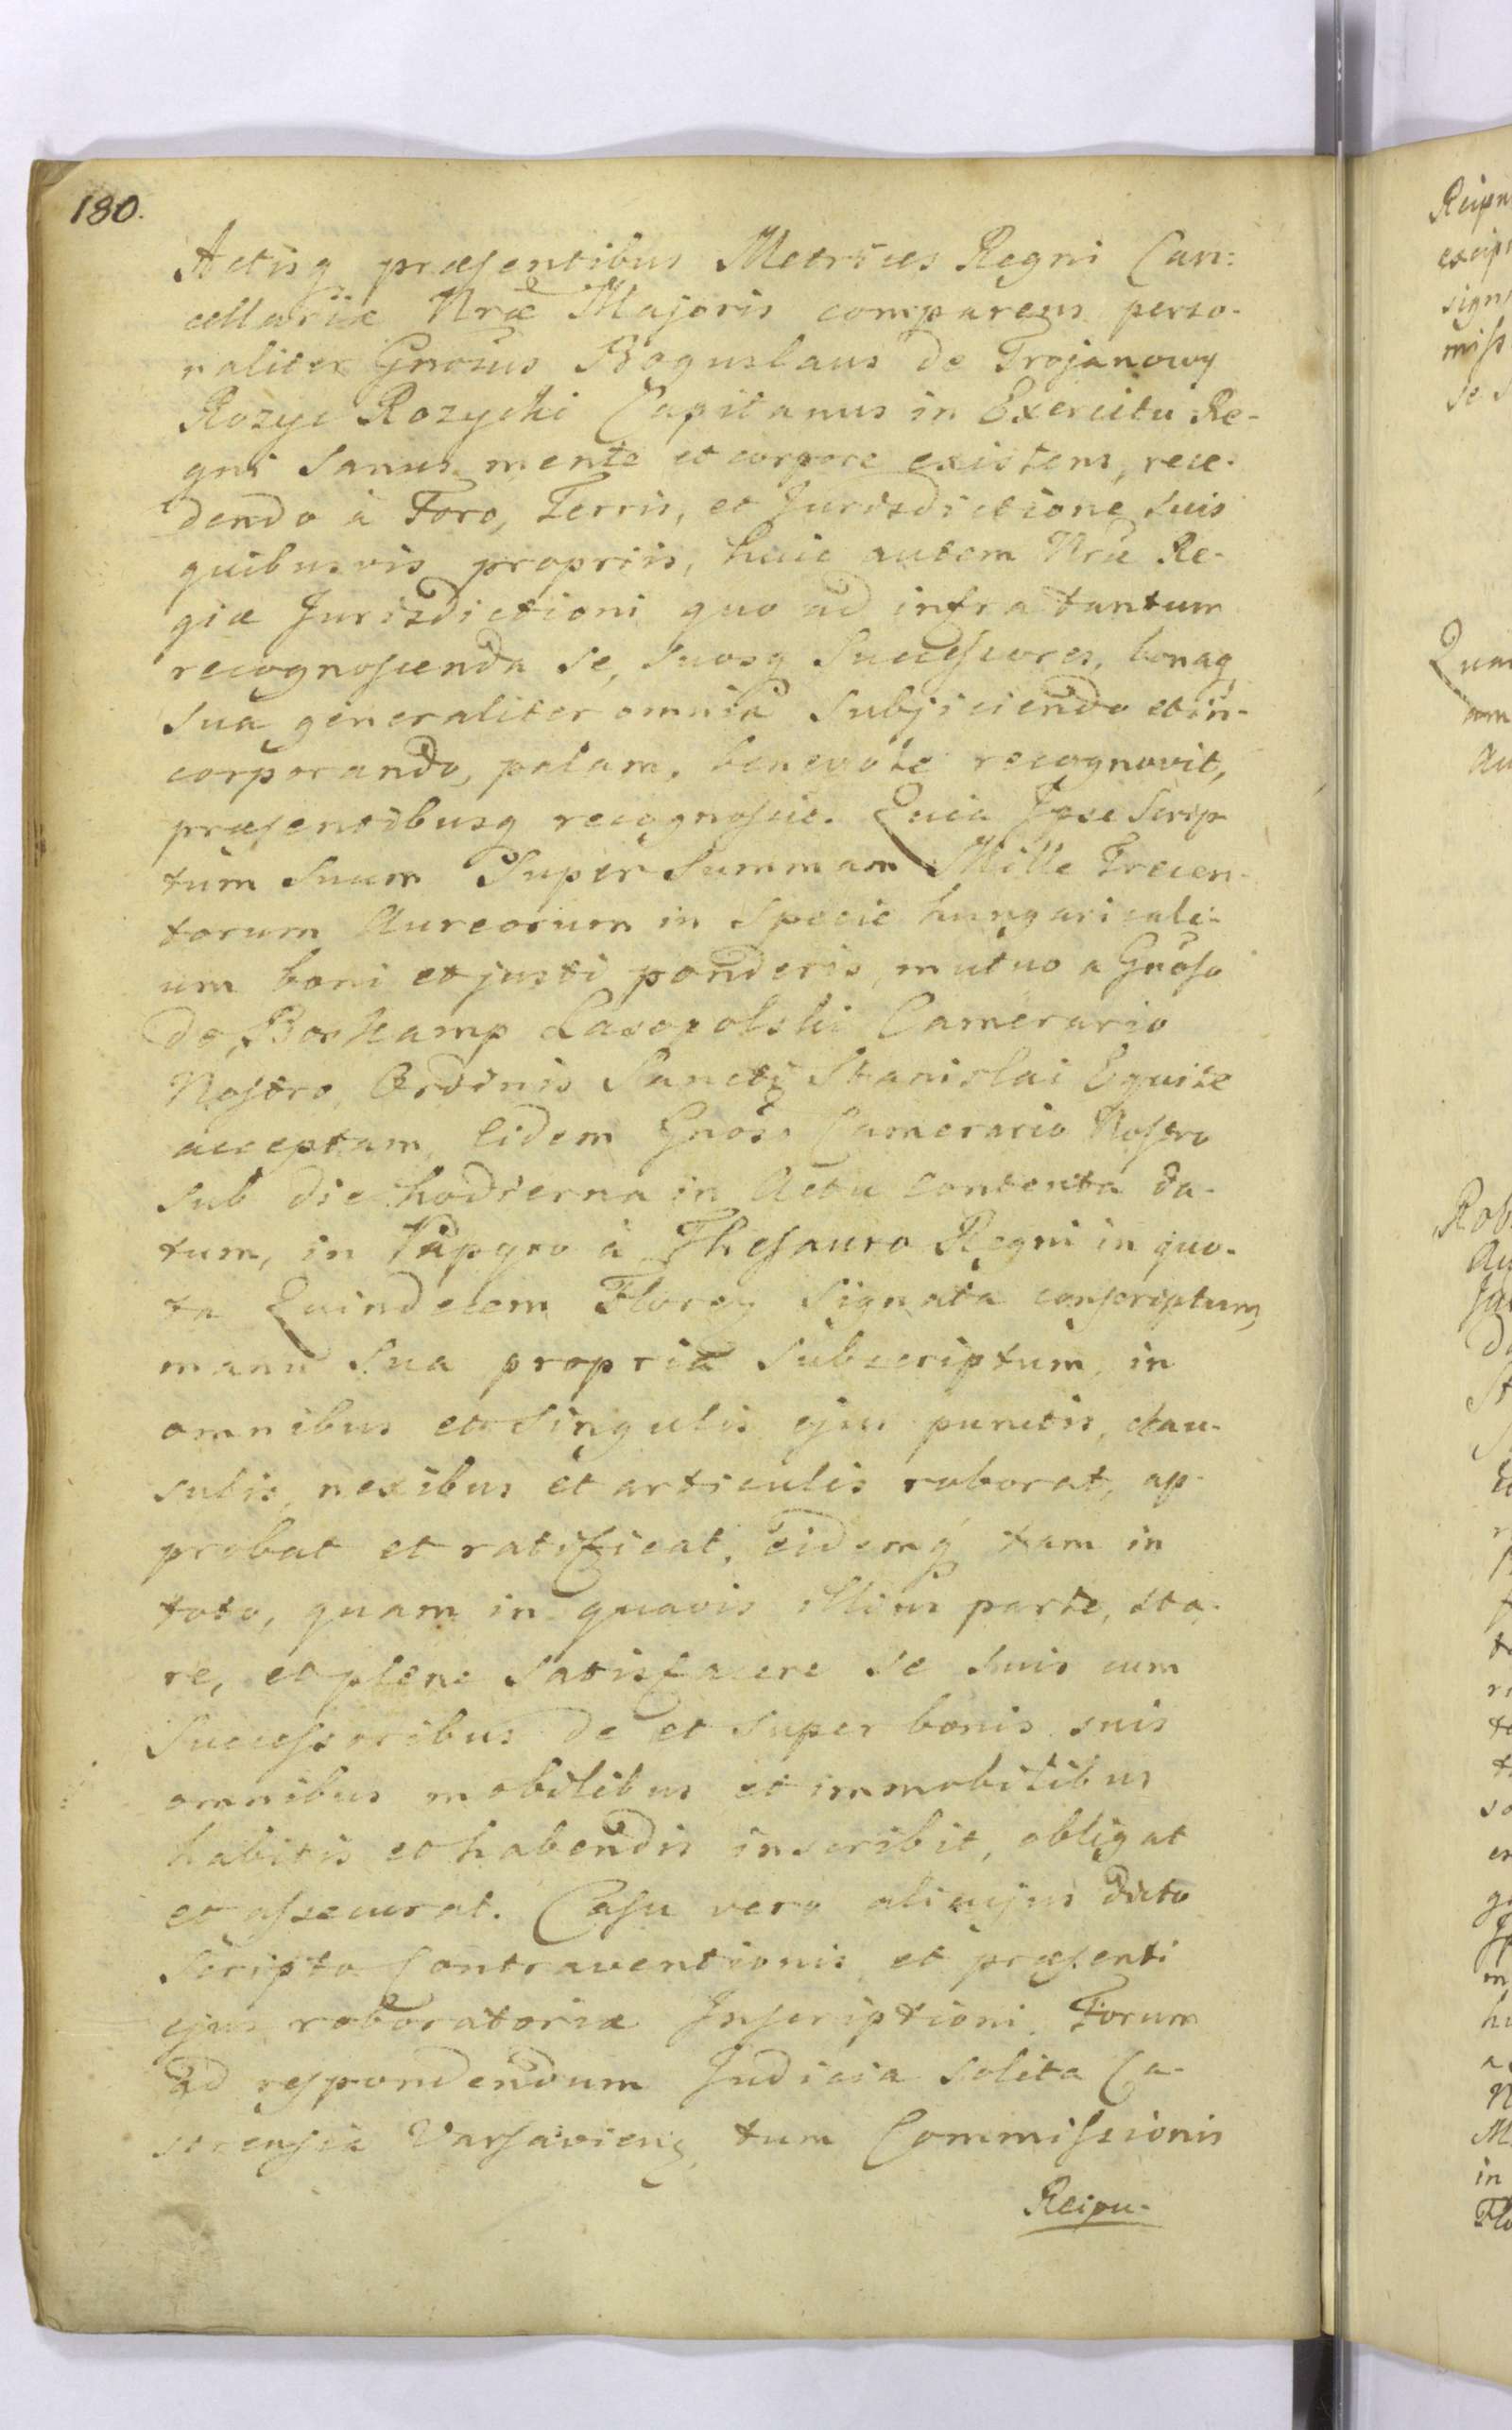 180.
Actisq præsentibus Metrices Regni Can:
cellariæ Nræ Majoris comparens perso-
naliter Gnosus Boguslaus de Trojanowy
Rozyc Rozycki Capitanus in Exercitu Re-
gni sanus mente et corpore existens, rece-
dendo à Foro, Terris, et Jurisdictione suis
quibusvis propriis, huic autem Nræ Re-
giæ Jurisdictioni quo ad infra tantum
recognoscenda se, suosq Successores, bonaq
sua generaliter omnia subjiciendo et in-
corporando, palam, benevole recognovit,
præsentibusq recognoscit. Quia Ipse Scrip
tum Suum Super Summam Mille Trecen-
torum Aureorum in specie hungaricali-
um boni et justi ponderis, mutuo a Gnoso
de Boskamp Lasopolski Camerario
Nostro, Ordinis Sancti Stanislai Equite
acceptam, Eidem Gnoso Camerario Nostro
sub die hodierna in Actu contenta da-
tum, in Papyro à Thesauro Regni in quo-
ta Quindecem Floreg signata conscriptum,
manu Sua propria subscriptum, in
omnibus et singulis ejus punctis, clau-
sulis, nexibus et articulis roborat, ap-
probat et ratificat, eidemq tam in
toto, quam in quavis illius parte, sta-
re, et plene satisfacere se suis cum
Successoribus de et super bonis suis
omnibus mobilibus et immobilibus
habitis et habendis inscribit, obligat
et assecurat. Casu vero alicujus dicto
Scripto Contraventionis et præsenti
ejus roboratoriæ Inscriptioni, Forum
ad respondendum Judicia solita Ca-
strensia Varsavieng, tum Commissionis
Reipu-